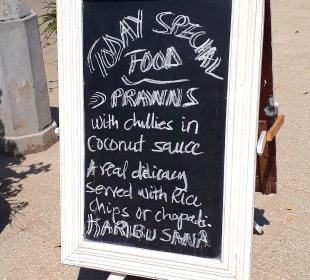 TODAY SPECIAL
FOOD
PRAWNS
with chullies in
Coconut sauce
A real delicacy
Served with Rice
chips or chapati.
KARIBU SANA